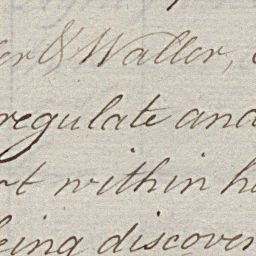 & Waller,
regulate and
within
discover